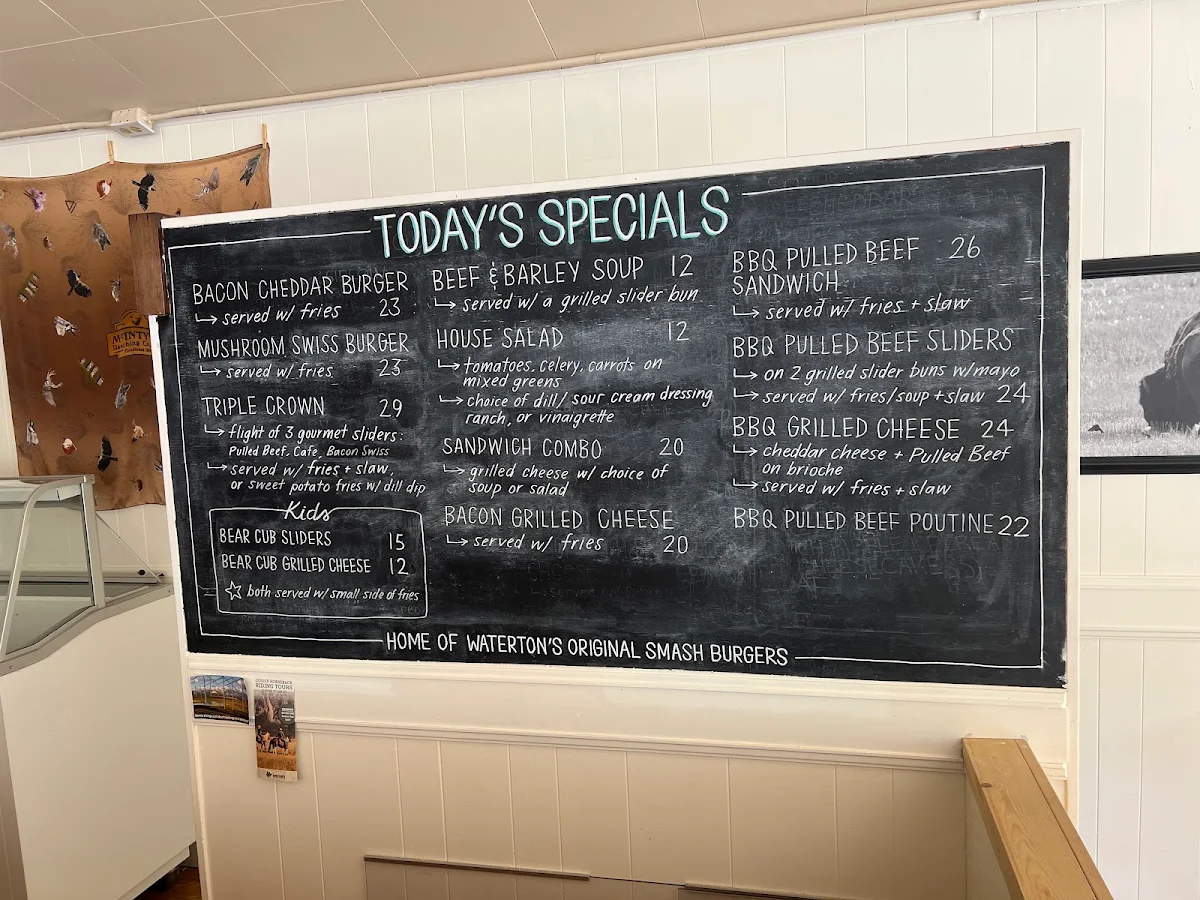 TODAY'S SPECIALS
BACON CHEDDAR BURGER
↳ served w/ fries 23
MUSHROOM SWISS BURGER
↳ served w/ fries 23
TRIPLE CROWN 29
↳ flight of 3 gourmet sliders:
Pulled Beef, Cafe, Bacon Swiss
↳ served w/ fries + slaw,
or sweet potato fries w/ dill dip
Kids
BEAR CUB SLIDERS 15
BEAR CUB GRILLED CHEESE 12
☆ both served w/ small side of fries
BEEF & BARLEY SOUP 12
↳ served w/ a grilled slider bun
HOUSE SALAD 12
↳ tomatoes, celery, carrots on
mixed greens
↳ choice of dill/ sour cream dressing
ranch, or vinaigrette
SANDWICH COMBO 20
↳ grilled cheese w/ choice of
soup or salad
BACON GRILLED CHEESE
↳ served w/ fries 20
BBQ PULLED BEEF 26
SANDWICH
↳ served w/ fries + slaw
BBQ PULLED BEEF SLIDERS
↳ on 2 grilled slider buns w/mayo
↳ served w/ fries/soup + slaw 24
BBQ GRILLED CHEESE 24
↳ cheddar cheese + Pulled Beef
on brioche
↳ served w/ fries + slaw
BBQ PULLED BEEF POUTINE 22
HOME OF WATERTON'S ORIGINAL SMASH BURGERS
RIDING TOURS